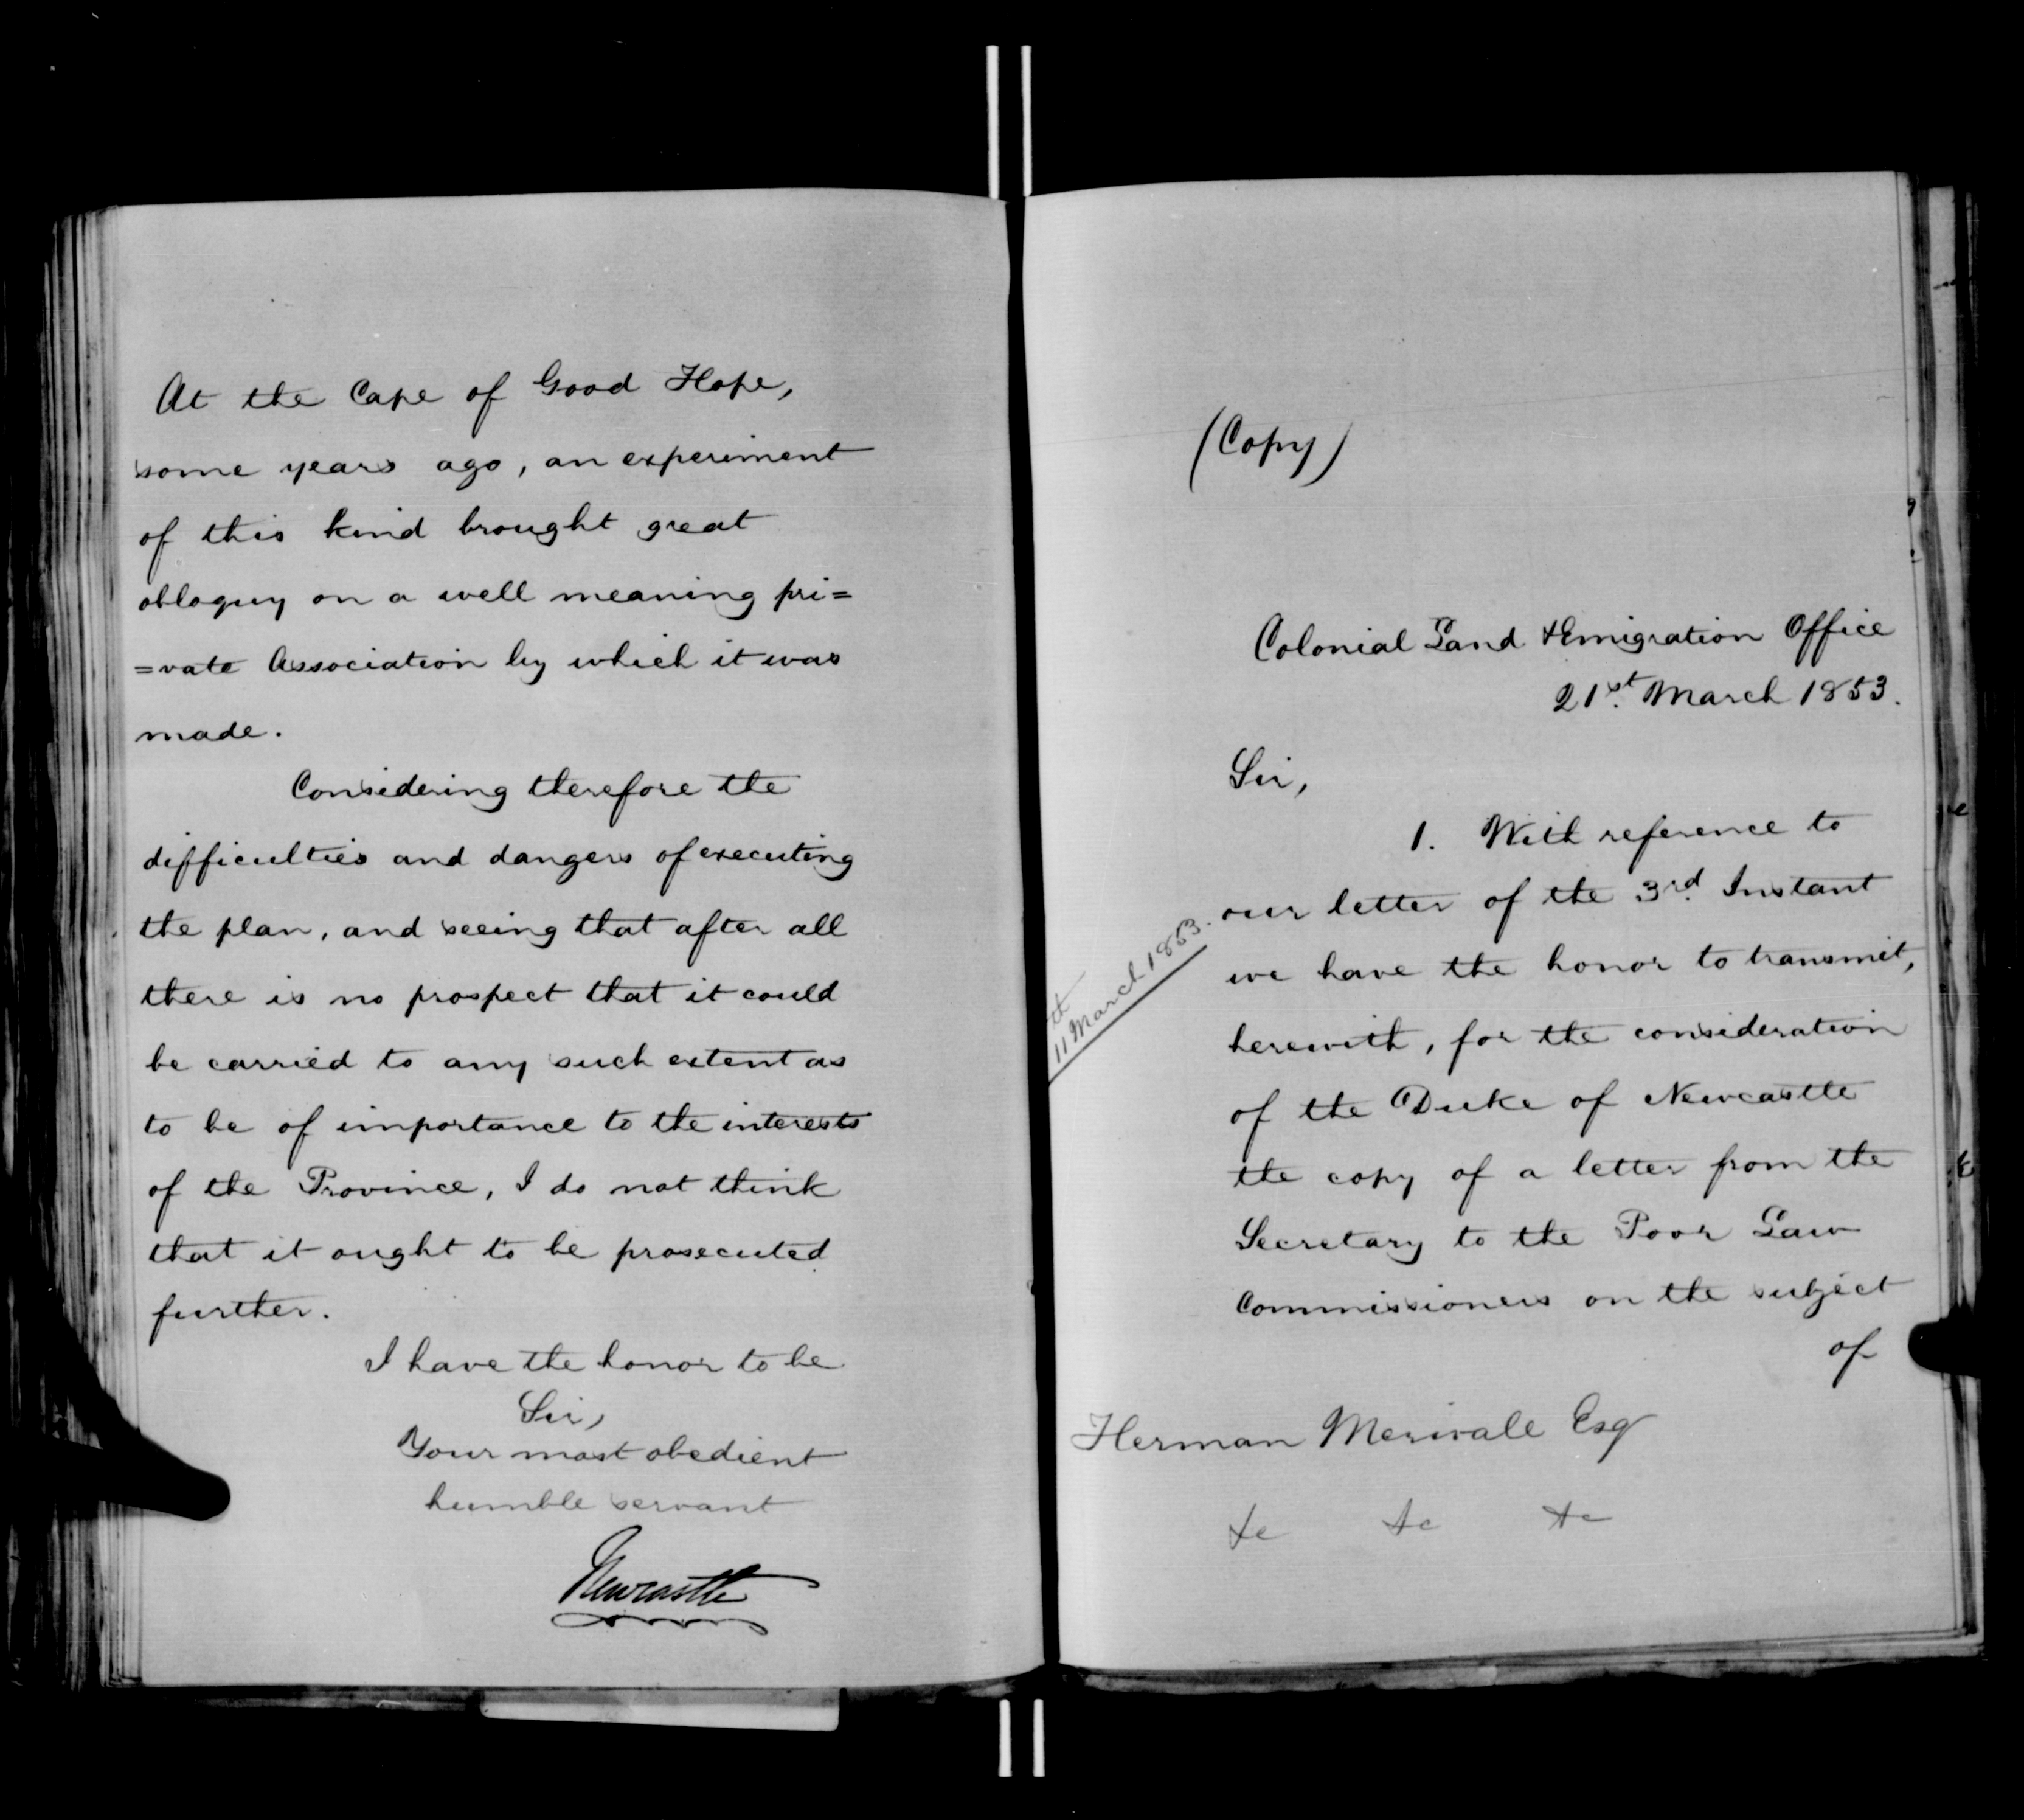 At the Cape of Good Hope,
some years ago, an experiment
of this kind brought great
obloquy on a well meaning pri=
=vate Association by which it was
made.
Considering therefore the
difficulties and dangers of executing
the plan, and seeing that after all
there is no prospect that it could
be carried to any such extent as
to be of importance to the interests
of the Province, I do not think
that it ought to be prosecuted
further.
I have the honor to be
Sir,
Your most obedient
humble servant
Newcastle
(Copy)
Colonial Land & Emigration Office
21st. March 1853.
Sir,
1. With reference to
our letter of the 3rd. Instant
we have the honor to transmit,
herewith, for the consideration
of the Duke of Newcastle
the copy of a letter from the
Secretary to the Poor Law
Commissioners on the subject
of
11th March 1853.
Herman Merivale Esq
&c &c &c